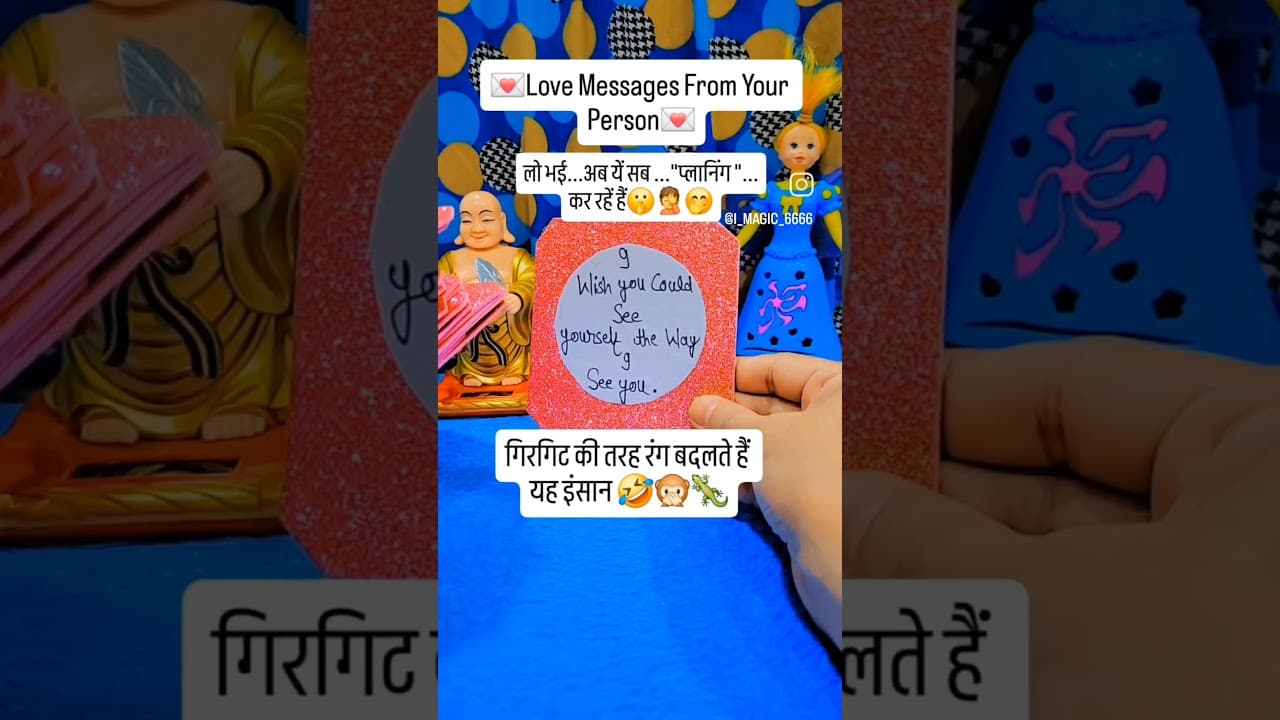 💌Love Messages From Your
Person💌
लो भई...अब यें सब ..."प्लानिंग "...
कर रहें हैं🤫🤦🤭
@I_MAGIC_6666
I
Wish you Could
See
yourself the Way
I
See you.
गिरगिट की तरह रंग बदलते हैं
यह इंसान 🤣🙊🦎
गिरगिट
लते हैं